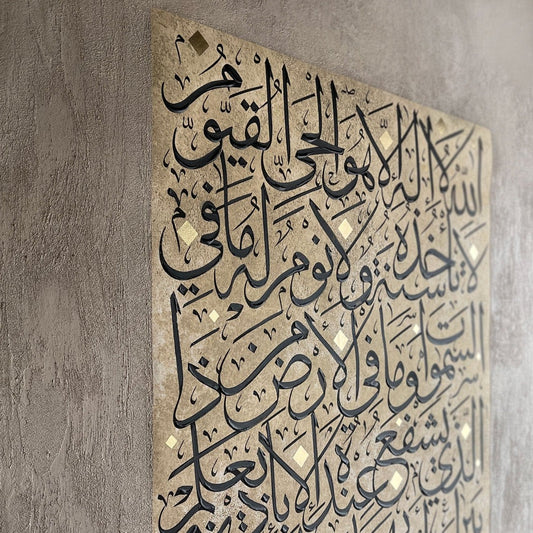 اللّٰه لا إله إلا هو الحي القيوم
لا تأخذه سنة ولا نوم له ما في
السموات وما في الأرض من ذا
الذي يشفع عنده إلا بإذنه يعلم